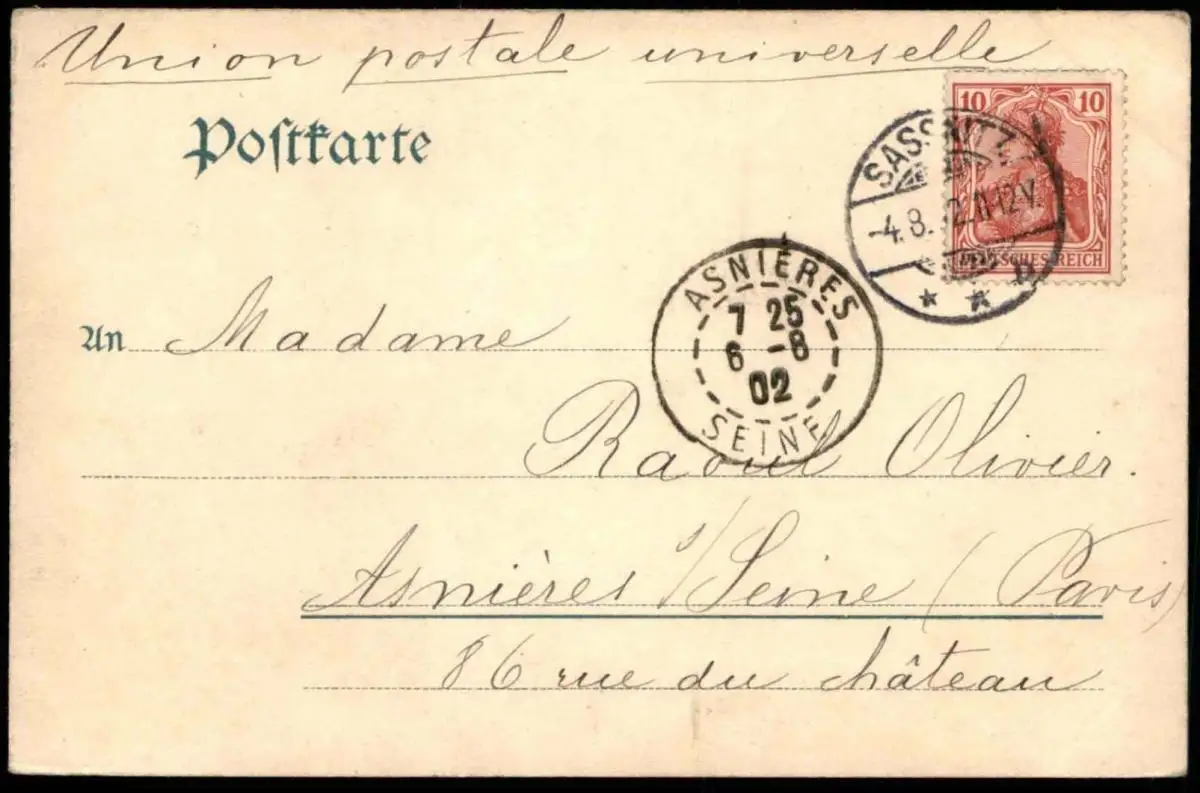 Union postale universelle
Postkarte
10 10
DEUTSCHES REICH
SASSNITZ
-4.8. 2.11-12V.
* * b
ASNIÈRES
7 25
6 -8
02
SEINE
An Madame
Raoul Olivier.
Asnières s/Seine (Paris)
86 rue du château